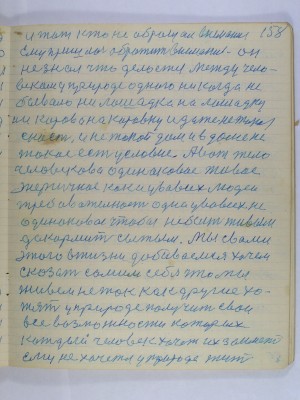 и тот кто не обращал внимания 158
Ему пришлос обратит внимание. он
не знал что делоетси между чело-
векому природе одного ни когда не
бывало ни лошадка на лошадку
ни корова на коровку и даже не
снаст, и не токой дом и в доме не
токое ест условие. А вот тело
человекова одинаковое живое
энергичное как и у всех людей
требователност одна у всех не
одинаковое чтобы не быт живым
да кормит сытым. Мы своми
этого в жизни добиваемся хочем
сказат самим себя это мы
живем не ток как другие хо-
тят у природе получит свои
все возможности которых
каждый человек хочет их
ему не хочется у природе жит